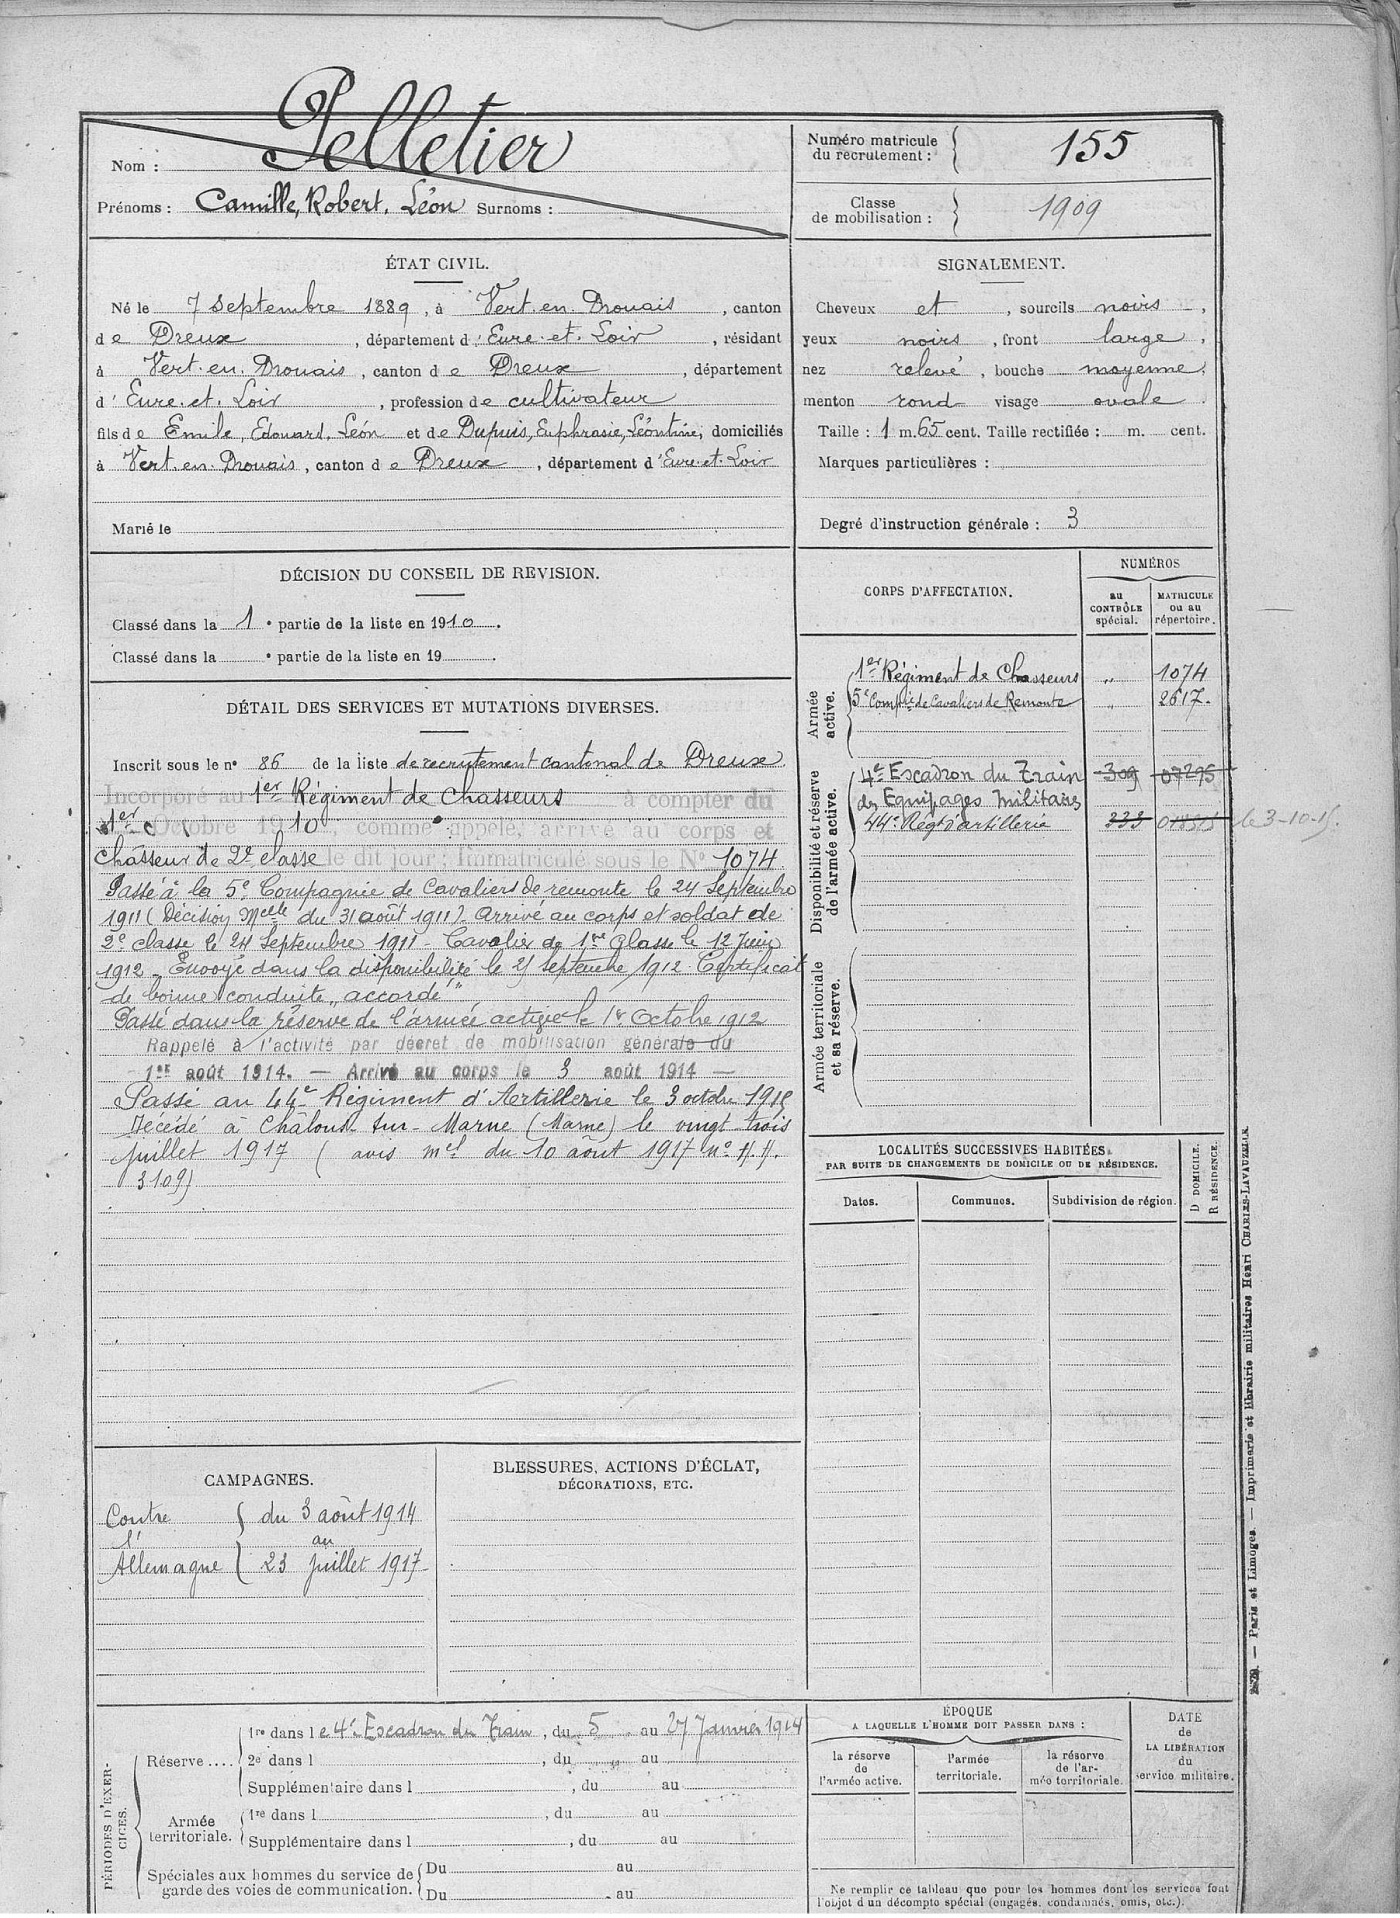 Nom : Pelletier
Prénoms : Camille, Robert, Léon Surnoms :
Numéro matricule du recrutement : 155
Classe de mobilisation : 1909
ÉTAT CIVIL.
Né le 7 septembre 1889, à Vert-en-Drouais, canton
de Dreux, département d'Eure-et-Loir, résidant
à Vert-en-Drouais, canton de Dreux, département
d'Eure-et-Loir, profession de cultivateur
fils de Emile, Edouard, Léon et de Dupuis, Euphrasie, Léontine, domiciliés
à Vert-en-Drouais, canton de Dreux, département d'Eure-et-Loir
Marié le
SIGNALEMENT.
Cheveux et, sourcils noirs,
yeux noirs, front large,
nez relevé, bouche moyenne,
menton rond visage ovale.
Taille : 1 m. 65 cent. Taille rectifiée : m. cent.
Marques particulières :
Degré d'instruction générale : 3
DÉCISION DU CONSEIL DE REVISION.
Classé dans la 1e partie de la liste en 1910.
Classé dans la e partie de la liste en 19 .
DÉTAIL DES SERVICES ET MUTATIONS DIVERSES.
Inscrit sous le n° 86 de la liste de recrutement cantonal de Dreux
Incorporé au 1er Régiment de Chasseurs à compter du
1er Octobre 1910, comme appelé, arrivé au corps et
chasseur de 2e classe le dit jour ; Immatriculé sous le N° 1074
Passé à la 5e Compagnie de Cavaliers de remonte le 24 Septembre
1911 (Décision Melle du 31 août 1911). Arrivé au corps et soldat de
2e classe le 24 Septembre 1911 - Cavalier de 1re Classe le 12 Juin
1912 - Envoyé dans la disponibilité le 25 septembre 1912. Certificat
de bonne conduite „accordé"
Passé dans la réserve de l'armée active le 1er Octobre 1912
Rappelé à l'activité par décret de mobilisation générale du
1er août 1914. — Arrivé au corps le 3 août 1914 —
Passé au 44e Régiment d'Artillerie le 3 octobre 1915
Décédé à Châlons-sur-Marne (Marne) le vingt-trois
juillet 1917 (avis mel du 10 août 1917 n°
3109)
CORPS D'AFFECTATION.
NUMÉROS
au CONTRÔLE spécial.
MATRICULE ou au répertoire.
Armée active.
1er Régiment de Chasseurs " 1074
5e Compie de Cavaliers de Remonte " 2617.
Disponibilité et réserve de l'armée active.
4e Escadron du Train 309 07295
des Equipages Militaires
44e Régt d'artillerie 333 le 3-10-15.
Armée territoriale et sa réserve.
LOCALITÉS SUCCESSIVES HABITÉES
PAR SUITE DE CHANGEMENTS DE DOMICILE OU DE RÉSIDENCE.
Dates. Communes. Subdivision de région. D DOMICILE. R RÉSIDENCE.
CAMPAGNES.
Contre du 3 août 1914
l' au
Allemagne 23 juillet 1917
BLESSURES, ACTIONS D'ÉCLAT,
DÉCORATIONS, ETC.
PÉRIODES D'EXERCICES.
Réserve....
1re dans le 4e Escadron du Train, du 5 au 27 Janvier 1914
2e dans l , du au
Supplémentaire dans l , du au
Armée territoriale.
1re dans l , du au
Supplémentaire dans l , du au
Spéciales aux hommes du service de garde des voies de communication.
Du au
Du au
ÉPOQUE
A LAQUELLE L'HOMME DOIT PASSER DANS :
la réserve de l'armée active.
l'armée territoriale.
la réserve de l'armée territoriale.
DATE de LA LIBÉRATION du service militaire.
Ne remplir ce tableau que pour les hommes dont les services font
l'objet d'un décompte spécial (engagés, condamnés, omis, etc.).
— Paris et Limoges. — Imprimerie et librairie militaires Henri CHARLES-LAVAUZELLE.